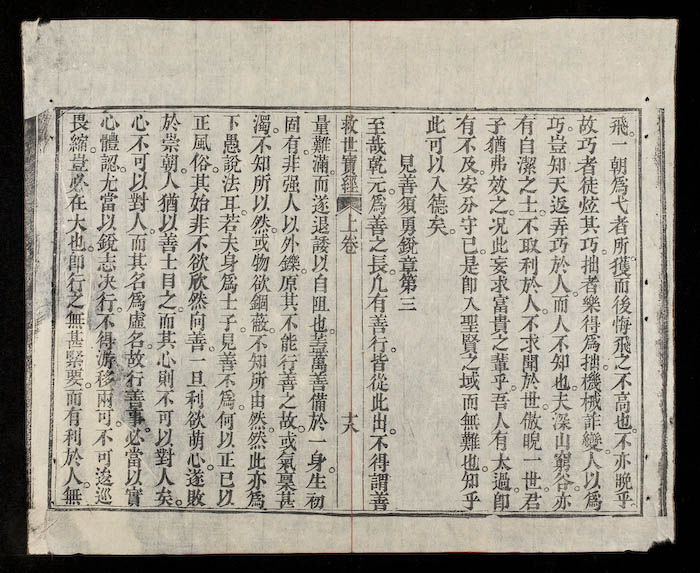 飛。一朝爲弋者所獲。而後悔飛之不高也。不亦晚乎。
故巧者徒炫其巧。拙者樂得爲拙。機械詐變。人以爲
巧。豈知天返弄巧於人。而人不知也。夫深山窮谷。亦
有自潔之士。不取利於人。不求聞於世。傲睨一世。君
子猶弗效之。况此妄求富貴之輩乎。吾人有太過。即
有不及。安分守已。是即入聖賢之域而無難也。知乎
此可以入德矣。
見善須勇銳章第三
至哉乾元。爲善之長。凡有善行。皆從此出。不得謂善
救世寶經 上卷 十八
量難滿。而遂退諉以自阻也。葢萬善備於一身。生初
固有。非强人以外鑠。原其不能行善之故。或氣稟甚
濁。不知所以然。或物欲錮蔽。不知所由然。然此亦爲
下愚說法耳。若夫身爲士子。見善不爲。何以正已以
正風俗。其始非不欲欣然向善。一旦利欲萌心。遂敗
於崇朝。人猶以善士目之。而其心則不可以對人矣。
心不可以對人。而其名爲虛名。故行善事。必當以實
心體認。尤當以銳志决行。不得游移兩可。不可逡巡
畏縮。豈必在大也。卽行之無甚緊要。而有利於人。無